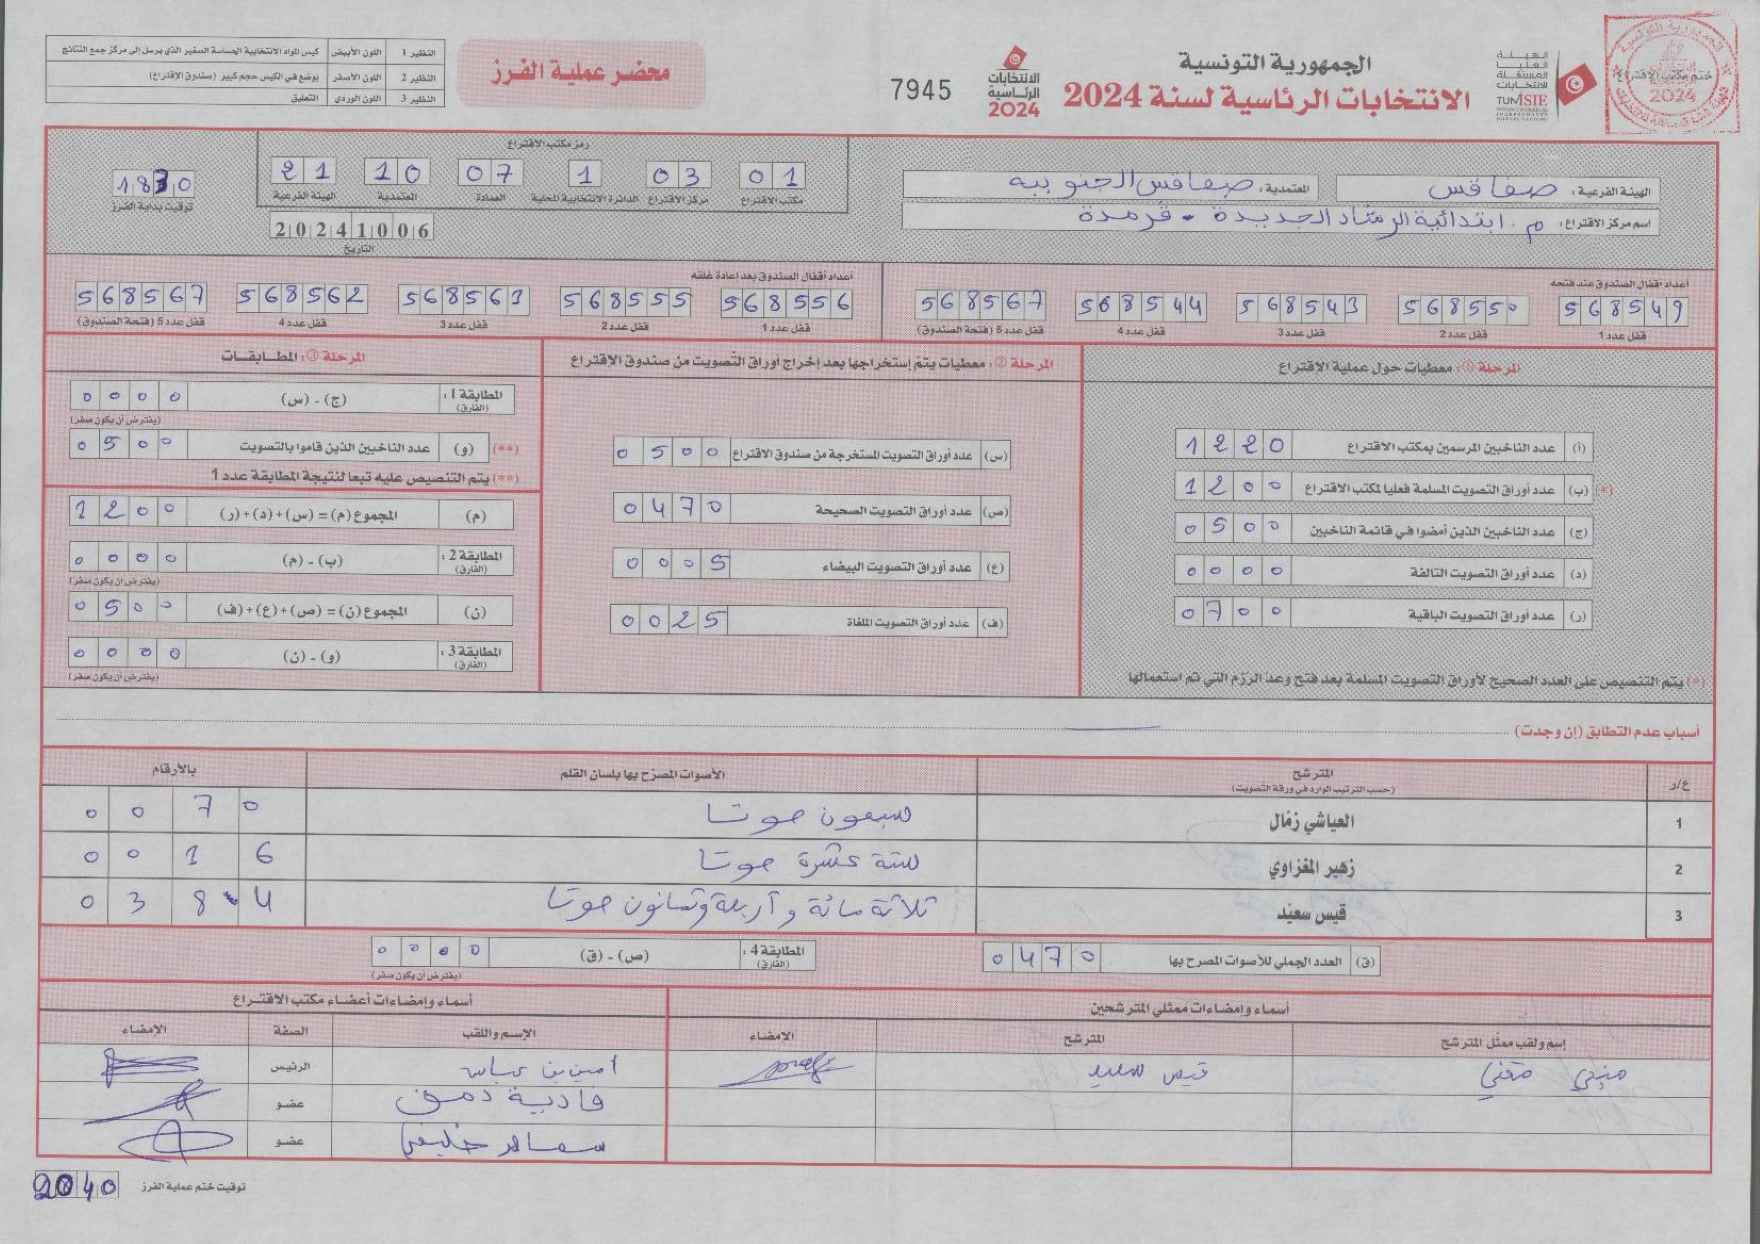 النظير 1 اللون الأبيض كيس المواد الانتخابية الحساسة الصغير الذي يرسل إلى مركز جمع النتائج
النظير 2 اللون الأصفر يوضع في الكيس حجم كبير (صندوق الاقتراع)
النظير 3 اللون الوردي التعليق
محضر عملية الفرز
7945
الانتخابات
الرئاسية
2024
الجمهورية التونسية
الانتخابات الرئاسية لسنة 2024
الهيئة
العليا
المستقلة
للانتخابات
TUNISIE
ختم مكتب الاقتراع
2024
الهيئة الفرعية: صفاقس
المعتمدية: صفاقس الجنوبية
اسم مركز الاقتراع: م. ابتدائية الرشاد الجديدة - قرمدة
رمز مكتب الاقتراع
01 03 1 07 10 21
مكتب الاقتراع مركز الاقتراع الدائرة الانتخابية المحلية العمادة المعتمدية الهيئة الفرعية
20241006
التاريخ
1830
توقيت بداية الفرز
أعداد أقفال الصندوق عند فتحه
568549 568550 568543 568544 568567
قفل عدد 1 قفل عدد 2 قفل عدد 3 قفل عدد 4 قفل عدد 5 (فتحة الصندوق)
أعداد أقفال الصندوق بعد إعادة غلقه
568556 568555 568561 568562 568567
قفل عدد 1 قفل عدد 2 قفل عدد 3 قفل عدد 4 قفل عدد 5 (فتحة الصندوق)
المرحلة ①: معطيات حول عملية الاقتراع
(أ) عدد الناخبين المرسمين بمكتب الاقتراع 1220
(*) (ب) عدد أوراق التصويت المسلمة فعليا لمكتب الاقتراع 1200
(ج) عدد الناخبين الذين أمضوا في قائمة الناخبين 0500
(د) عدد أوراق التصويت التالفة 0000
(ر) عدد أوراق التصويت الباقية 0700
(*) يتم التنصيص على العدد الصحيح لأوراق التصويت المسلمة بعد فتح وعد الرزم التي تم استعمالها
المرحلة ②: معطيات يتم إستخراجها بعد إخراج أوراق التصويت من صندوق الاقتراع
(س) عدد أوراق التصويت المستخرجة من صندوق الاقتراع 0500
(ص) عدد أوراق التصويت الصحيحة 0470
(ع) عدد أوراق التصويت البيضاء 0005
(ف) عدد أوراق التصويت الملغاة 0025
المرحلة ③: المطابقات
المطابقة 1: (الفارق) (ج) - (س) 0000
(يفترض أن يكون صفر)
(**) (و) عدد الناخبين الذين قاموا بالتصويت 0500
(**) يتم التنصيص عليه تبعا لنتيجة المطابقة عدد 1
(م) المجموع (م) = (س) + (د) + (ر) 1200
المطابقة 2: (الفارق) (ب) - (م) 0000
(يفترض أن يكون صفر)
(ن) المجموع (ن) = (ص) + (ع) + (ف) 0500
المطابقة 3: (الفارق) (و) - (ن) 0000
(يفترض أن يكون صفر)
أسباب عدم التطابق (إن وجدت)
ع/ر المترشح الأصوات المصرح بها بلسان القلم بالأرقام
(حسب الترتيب الوارد في ورقة التصويت)
1 العياشي زمّال سبعون صوتا 0070
2 زهير المغزاوي ستة عشرة صوتا 0016
3 قيس سعيّد ثلاثة مائة وأربعة وثمانون صوتا 0384
(ق) العدد الجملي للأصوات المصرح بها 0470
المطابقة 4: (الفارق) (ص) - (ق) 0000
(يفترض أن يكون صفر)
أسماء وإمضاءات ممثلي المترشحين
إسم ولقب ممثل المترشح المترشح الامضاء
قيس سعيد
أسماء وإمضاءات أعضاء مكتب الاقتراع
الإسم واللقب الصفة الامضاء
امين بن عباس الرئيس
فادية دمق عضو
سهام خليفي عضو
توقيت ختم عملية الفرز 2040